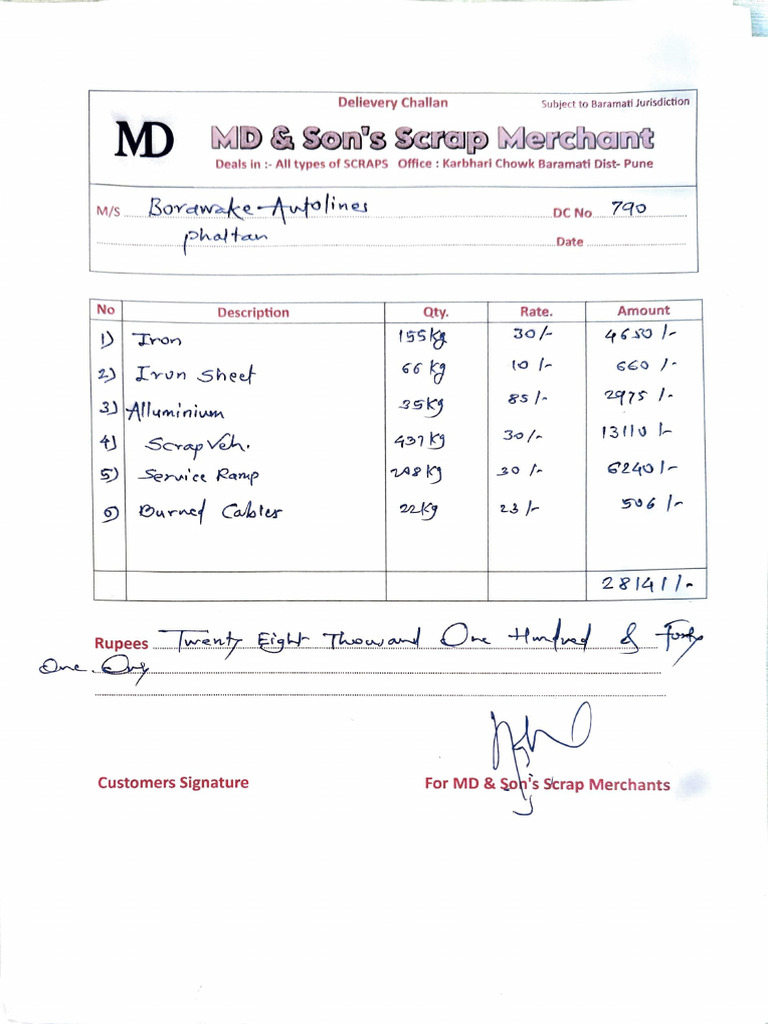 Delievery Challan Subject to Baramati Jurisdiction
MD MD & Son's Scrap Merchant
Deals in :- All types of SCRAPS Office : Karbhari Chowk Baramati Dist- Pune
M/S Borawake Autolines DC No 790
Phaltan Date
No Description Qty. Rate. Amount
1) Iron 155kg 30/- 4650/-
2) Irun Sheet 66 kg 10/- 660/-
3) Alluminium 35kg 85/- 2975/-
4) Scrap Veh. 437kg 30/- 13110/-
5) Service Ramp 208kg 30/- 6240/-
6) Burned Cables 22kg 23/- 506/-
28141/-
Rupees Twenty Eight Thousand One Hundred & Forty
One Only
Customers Signature For MD & Son's Scrap Merchants